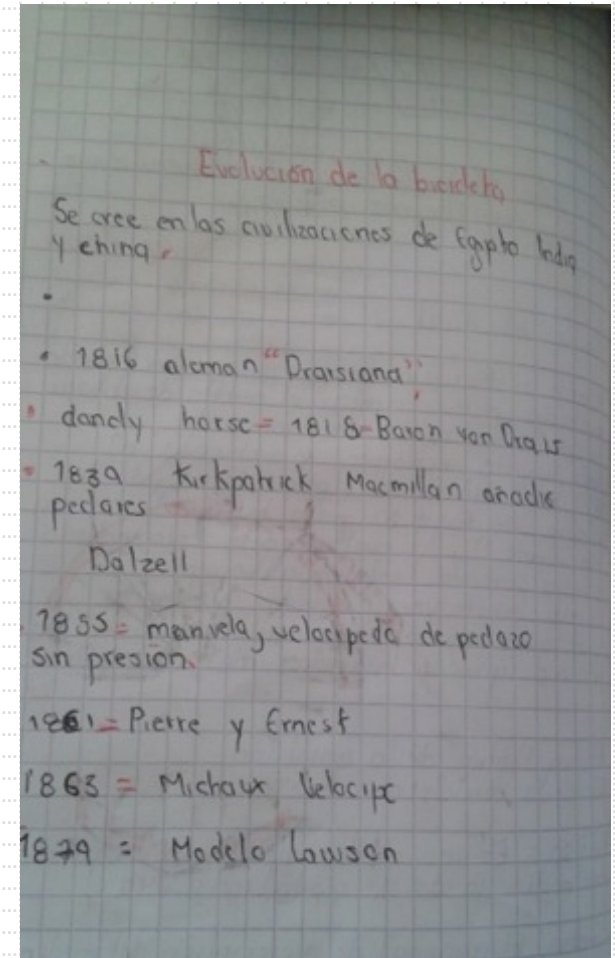 Evolución de la bicicleta
Se cree en las civilizaciones de Egipto India
y china.
•
• 1816 aleman "Draisiana"
• dandy horse = 1818 - Baron von Drais
• 1839 Kirkpatrick Macmillan añade
pedales
Dalzell
1855 = manivela, velocipeda de pedazo
sin presion.
1861 = Pierre y Ernest
1863 = Michaux Velocipe
1879 = Modelo Lawson